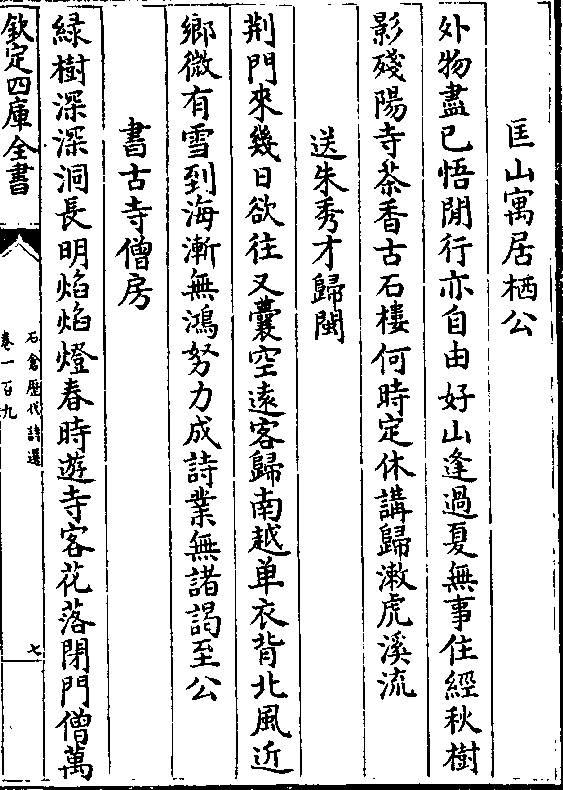 匡山寓居栖公
外物盡已悟閒行亦自由好山逢過夏無事住經秋樹
影殘陽寺茶香古石樓何時定休講歸漱虎溪流
送朱秀才歸閩
荆門來幾日欲往又囊空遠客歸南越单衣背北風近
鄉微有雪到海漸無鴻努力成詩業無諸謁至公
書古寺僧房
緑樹深深洞長明焰焰燈春時遊寺客花落閉門僧萬
欽定四庫全書
石倉歷代詩選
卷一百九
七